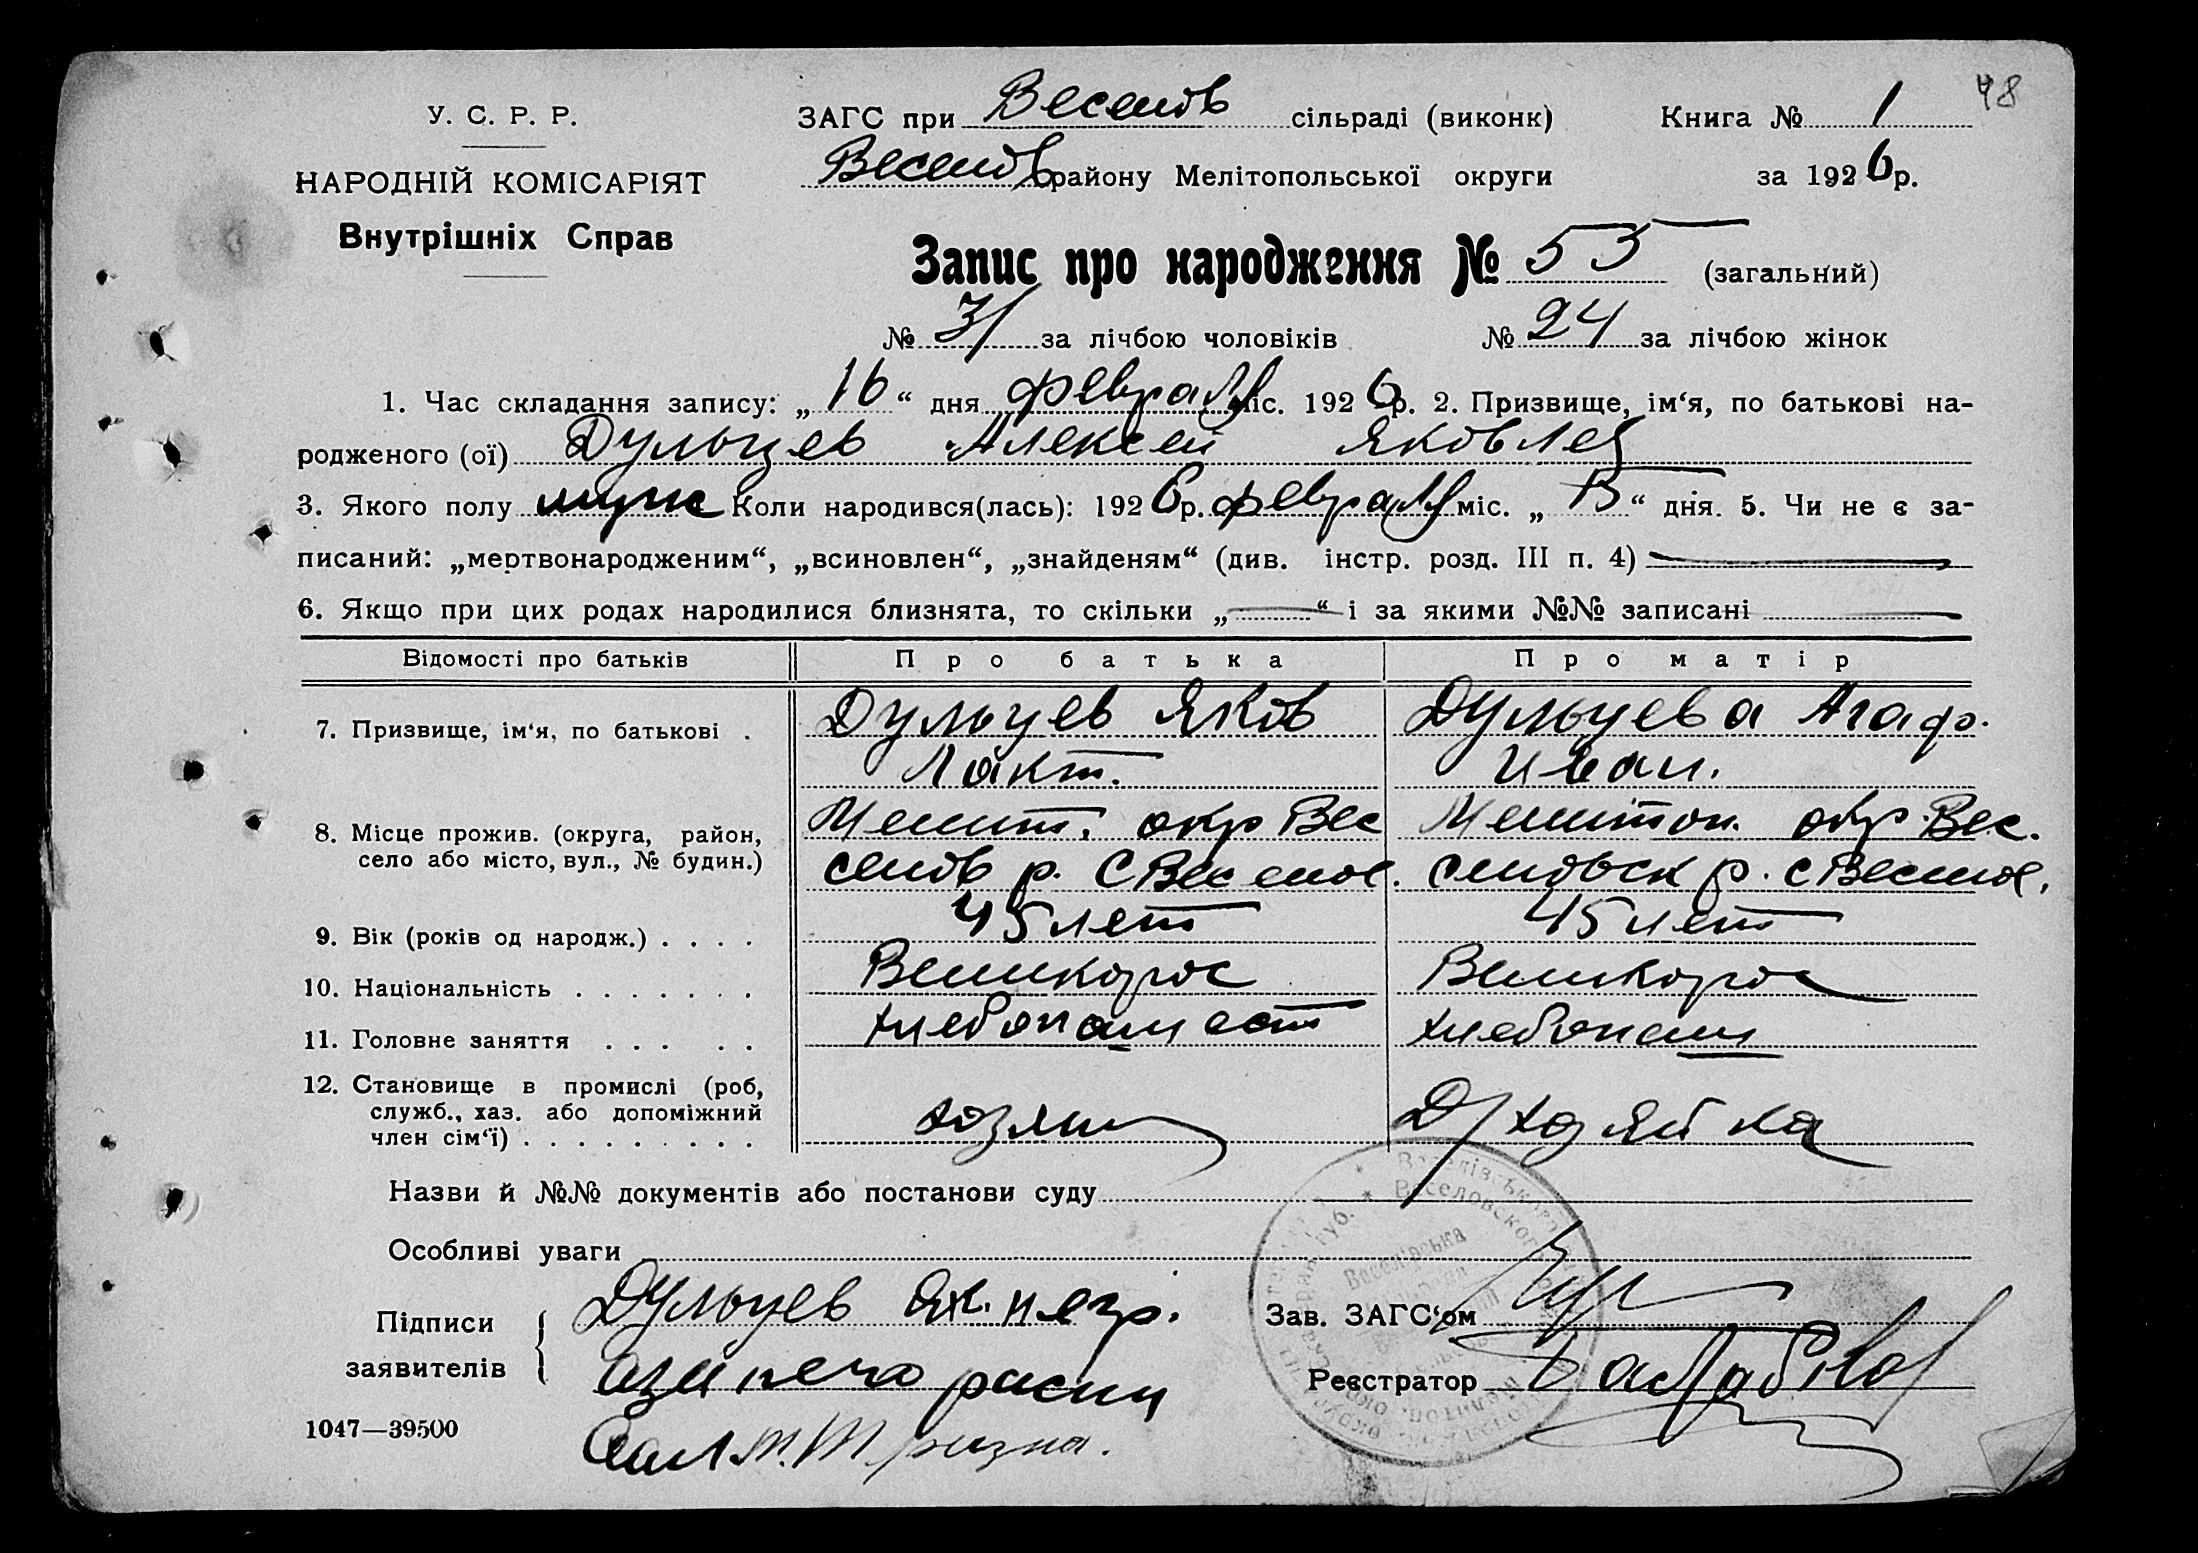 48
У. С. Р. Р.
ЗАГС при Веселов сільраді (виконк) Книга № 1
НАРОДНІЙ КОМІСАРІЯТ
Веселов району Мелітопольської округи за 1926 р.
Внутрішніх Справ
Запис про народження № 55 (загальний)
№ 31 за лічбою чоловіків № 24 за лічбою жінок
1. Час складання запису: „16“ дня февраля міс. 1926 р. 2. Призвище, ім‘я, по батькові на-
родженого (ої) Дульцев Алексей Яковлев
3. Якого полу муж Коли народився(лась): 1926 р. февраля міс. „15“ дня. 5. Чи не є за-
писаний: „мертвонародженим“, „всиновлен“, „знайденям“ (див. інстр. розд. III п. 4) —
6. Якщо при цих родах народилися близнята, то скільки „—“ і за якими №№ записані —
Відомості про батьків Про батька Про матір
7. Призвище, ім‘я, по батькові . Дульцев Яков Дульцева Агаф.
Лакт. Иван.
8. Місце прожив. (округа, район, Мелит. окр Вес Мелитоп. окр. Вес.
село або місто, вул., № будин.) селов р. С Веселое. еловск р. с Веселое.
9. Вік (років од народж.) . . . . 45 лет 45 лет
10. Національність . . . . . . . Великорос Великорос
11. Головне заняття . . . . . хлебопашест хлебопаш
12. Становище в промислі (роб,
служб., хаз. або допоміжний
член сім‘ї) . . . . . . . . . хозяин Д/хозяйка
Назви й №№ документів або постанови суду
Особливі уваги
Підписи заявителів Дульцев Як. негр.
Зав. ЗАГС‘ом
а за него распи
Реєстратор
1047—39500